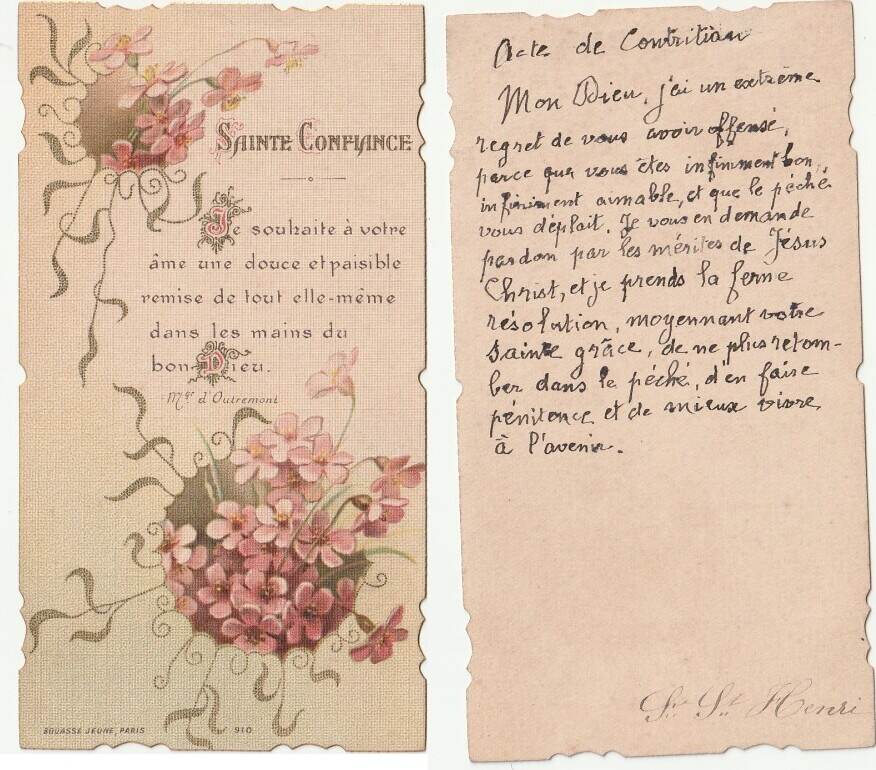 SAINTE CONFIANCE
Je souhaite à votre
âme une douce et paisible
remise de tout elle-même
dans les mains du
bon Dieu.
Mgr d'Outremont
BOUASSE JEUNE, PARIS
910
Acte de Contrition
Mon Dieu, j'ai un extrème
regret de vous avoir offensé,
parce que vous êtes infiniment bon,
infiniment aimable, et que le péché
vous déplait. Je vous en demande
pardon par les mérites de Jésus
Christ, et je prends la ferme
résolution, moyennant votre
sainte grâce, de ne plus retom-
ber dans le péché, d'en faire
pénitence et de mieux vivre
à l'avenir.
Sr St Henri